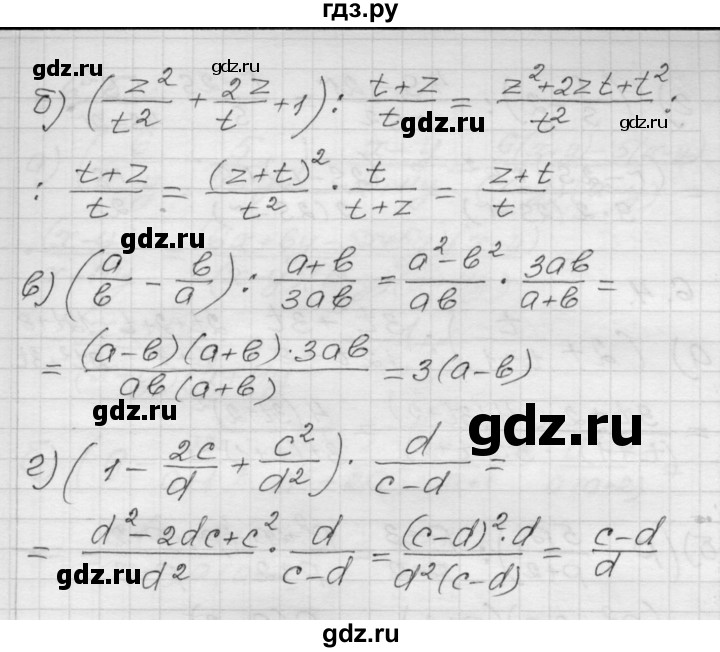 гдз.ру
gdz.ru gdz.ru
б) (z²/t² + 2z/t + 1) : (t+z)/t = (z²+2zt+t²)/t² :
gdz.ru gdz.ru
: (t+z)/t = (z+t)²/t² · t/(t+z) = (z+t)/t
gdz.ru
в) (a/в - в/a) : (a+в)/3aв = (a²-в²)/aв · 3aв/(a+в) =
= (a-в)(a+в)·3aв/aв(a+в) = 3(a-в)
gdz.ru gdz.ru
г) (1 - 2c/d + c²/d²) · d/(c-d) =
= (d²-2dc+c²)/d² · d/(c-d) = (c-d)²·d/d²(c-d) = (c-d)/d
gdz.ru gdz.ru
gdz.ru